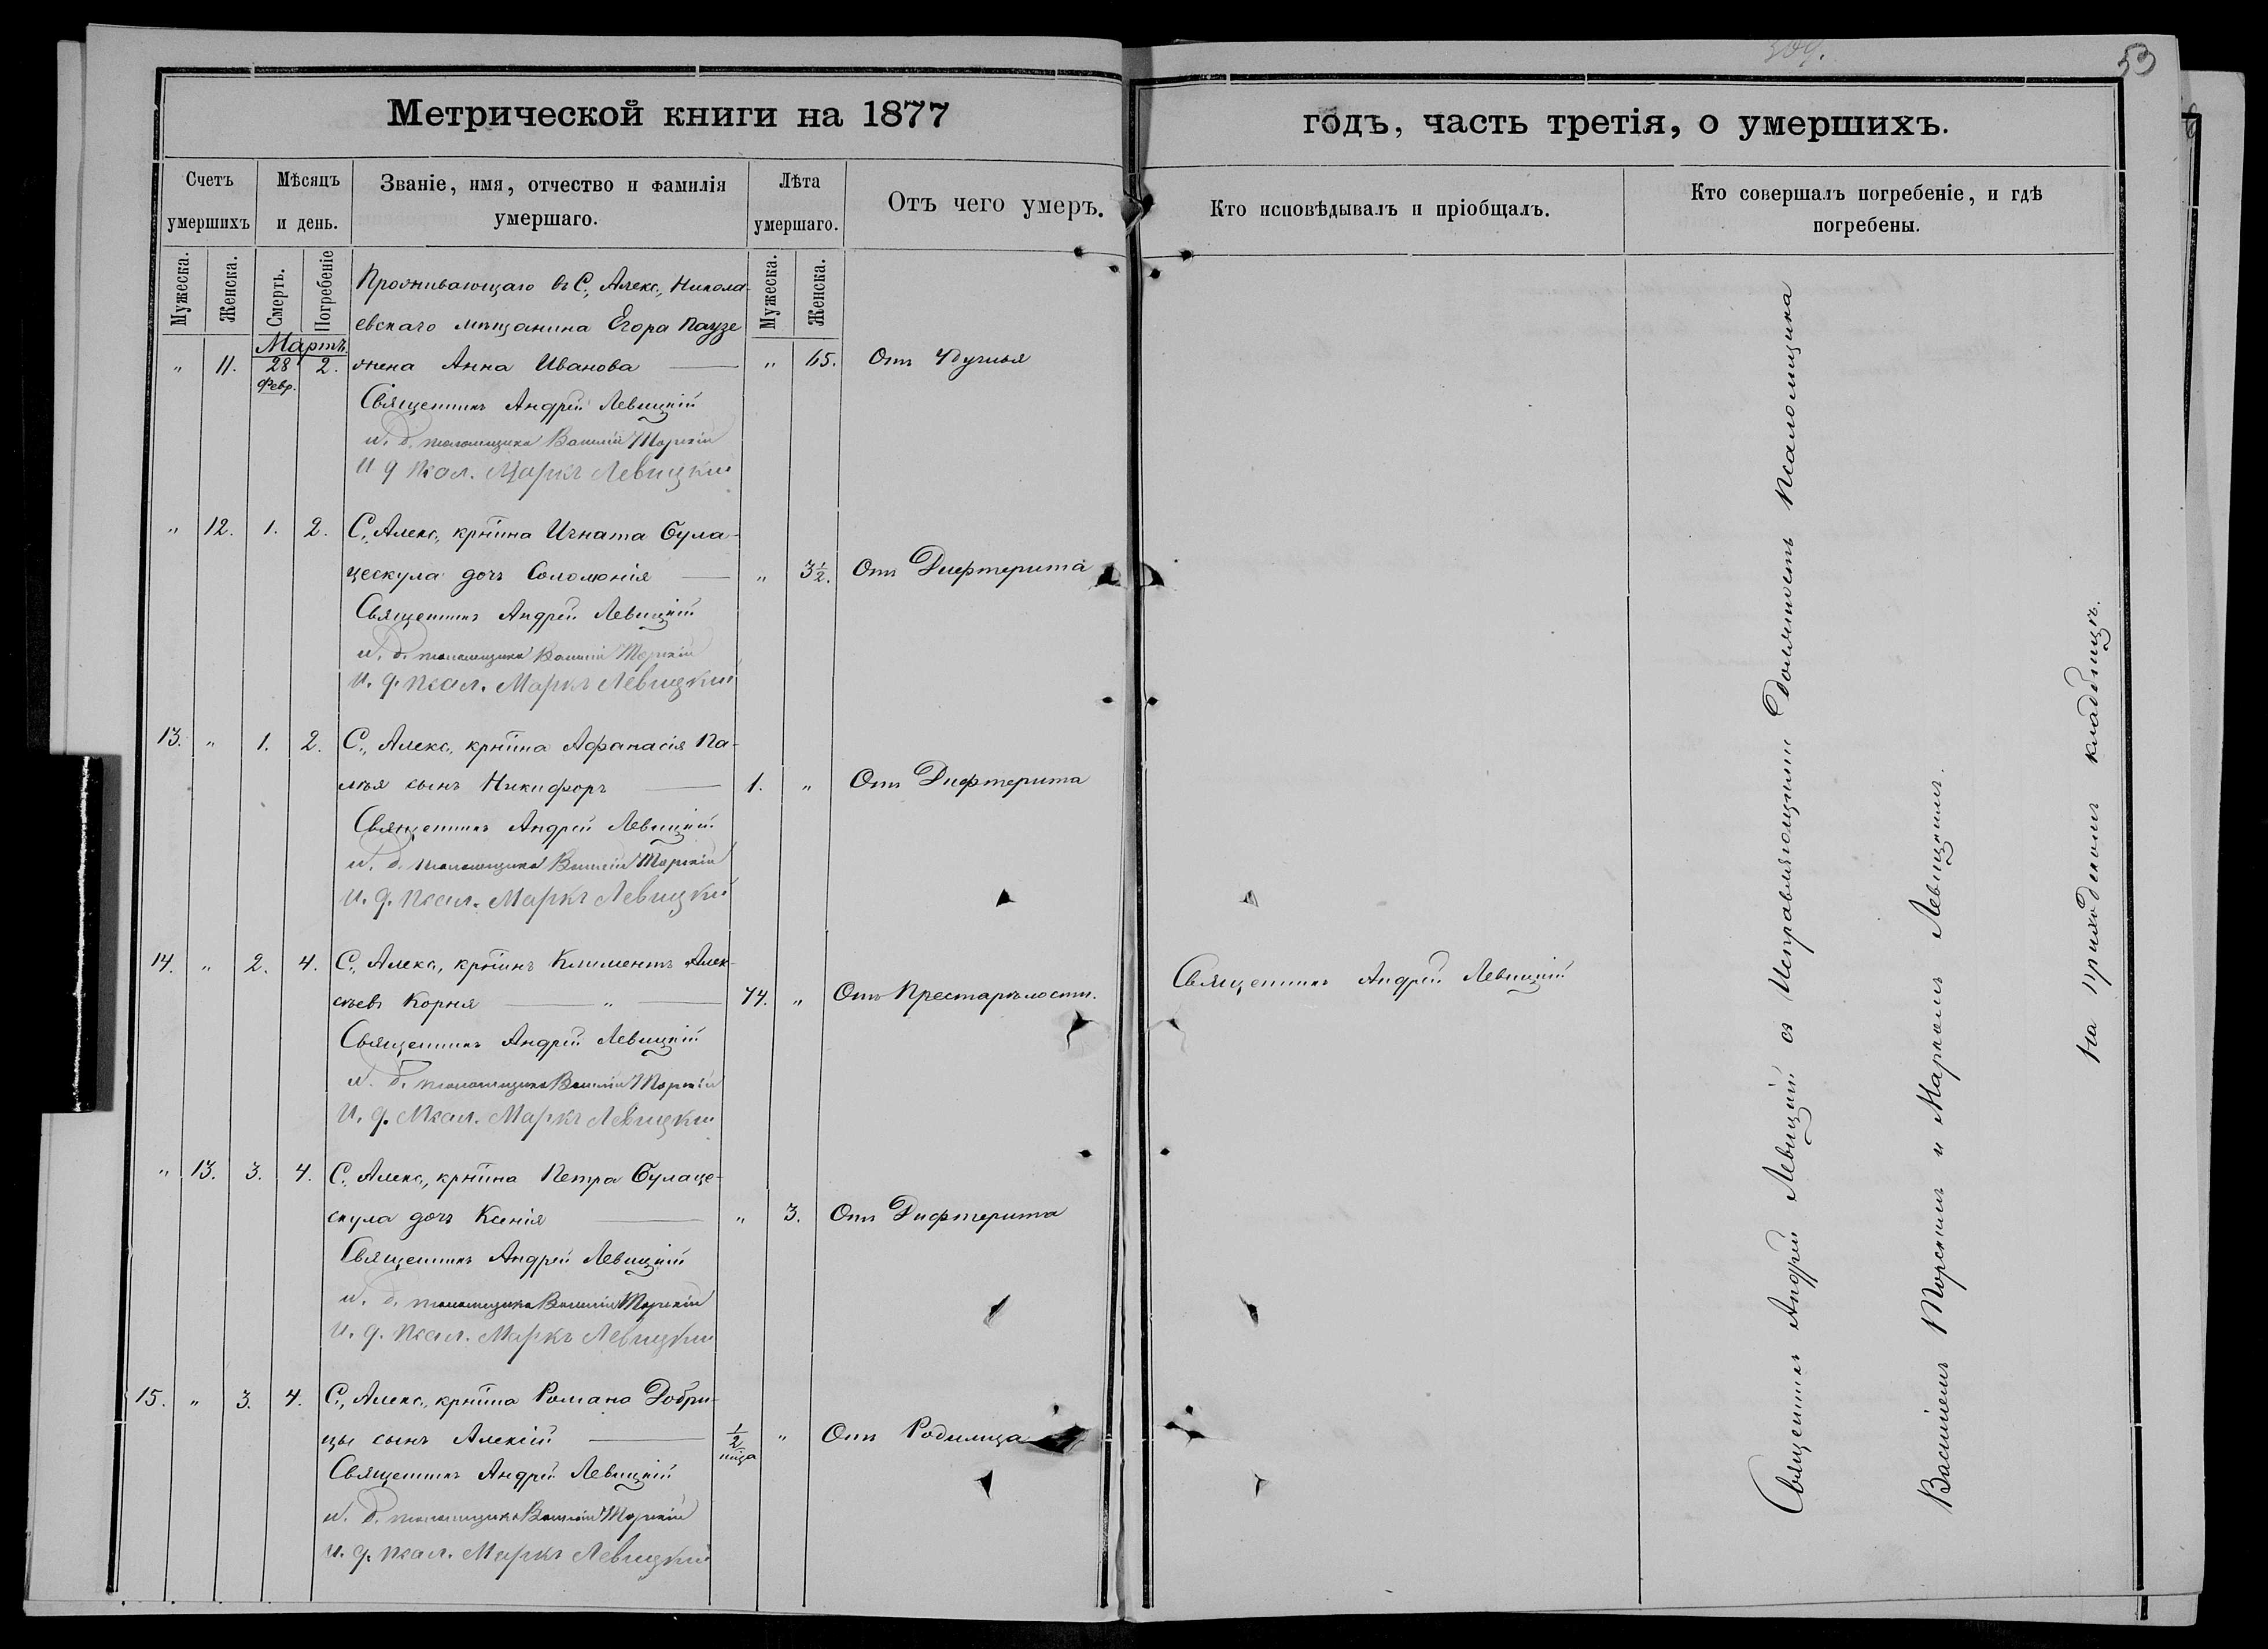 309.
53
Метрической книги на 1877
годъ, часть третія, о умершихъ.
Счетъ умершихъ
Мѣсяцъ и день.
Званіе, имя, отчество и фамилія умершаго.
Лѣта умершаго.
Отъ чего умеръ.
Кто исповѣдывалъ и пріобщалъ.
Кто совершалъ погребеніе, и гдѣ погребены.
Мужеска.
Женска.
Смерть.
Погребеніе
Мужеска.
Женска.
Мартъ.
Проживающаго въ С., Алекс., Никола-
евскаго мѣщанина Егора Паузе
" 11. 28 Февр. 2. жена Анна Иванова " 65. Отъ
Священникъ Андрей Левицкій
и. д. псаломщика Василій Торскій
И д Псал. Маркъ Левицкій
" 12. 1. 2. С., Алекс., крнина Игната Була-
цескула дочь Соломонія " 3½. Отъ Дифтерита
Священникъ Андрей Левицкій
и. д. псаломщика Василій Торскій
И. д. Псал. Маркъ Левицкій
13. " 1. 2. С., Алекс., крнина Афанасія Па-
лія сынъ Никифоръ 1. " Отъ Дифтерита
Священникъ Андрей Левицкій
и. д. псаломщика Василій Торскій
И. д. Псал. Маркъ Левицкій
14. " 2. 4. С., Алекс., крнинъ Климентъ Алек-
сѣевъ Корня " 74. " Отъ Престарѣлости.
Священникъ Андрей Левицкій
Священникъ Андрей Левицкій
и. д. псаломщика Василій Торскій
И. д. Псал. Маркъ Левицкій
" 13. 3. 4. С., Алекс., крнина Петра Булаце-
скула дочь Ксенія " 3. Отъ Дифтерита
Священникъ Андрей Левицкій
и. д. псаломщика Василій Торскій
И. д. Псал. Маркъ Левицкій
15. " 3. 4. С., Алекс., крнина Романа Добри-
цы сынъ Алексій ½ " Отъ Родимца
Священникъ Андрей Левицкій
и. д. псаломщика Василій Торскій
И. д. Псал. Маркъ Левицкій
Священникъ Андрей Левицкій съ Исправляющими Должность Псаломщика
Василіемъ Торскимъ и Маркомъ Левицкимъ.
На приходскомъ кладбищѣ.